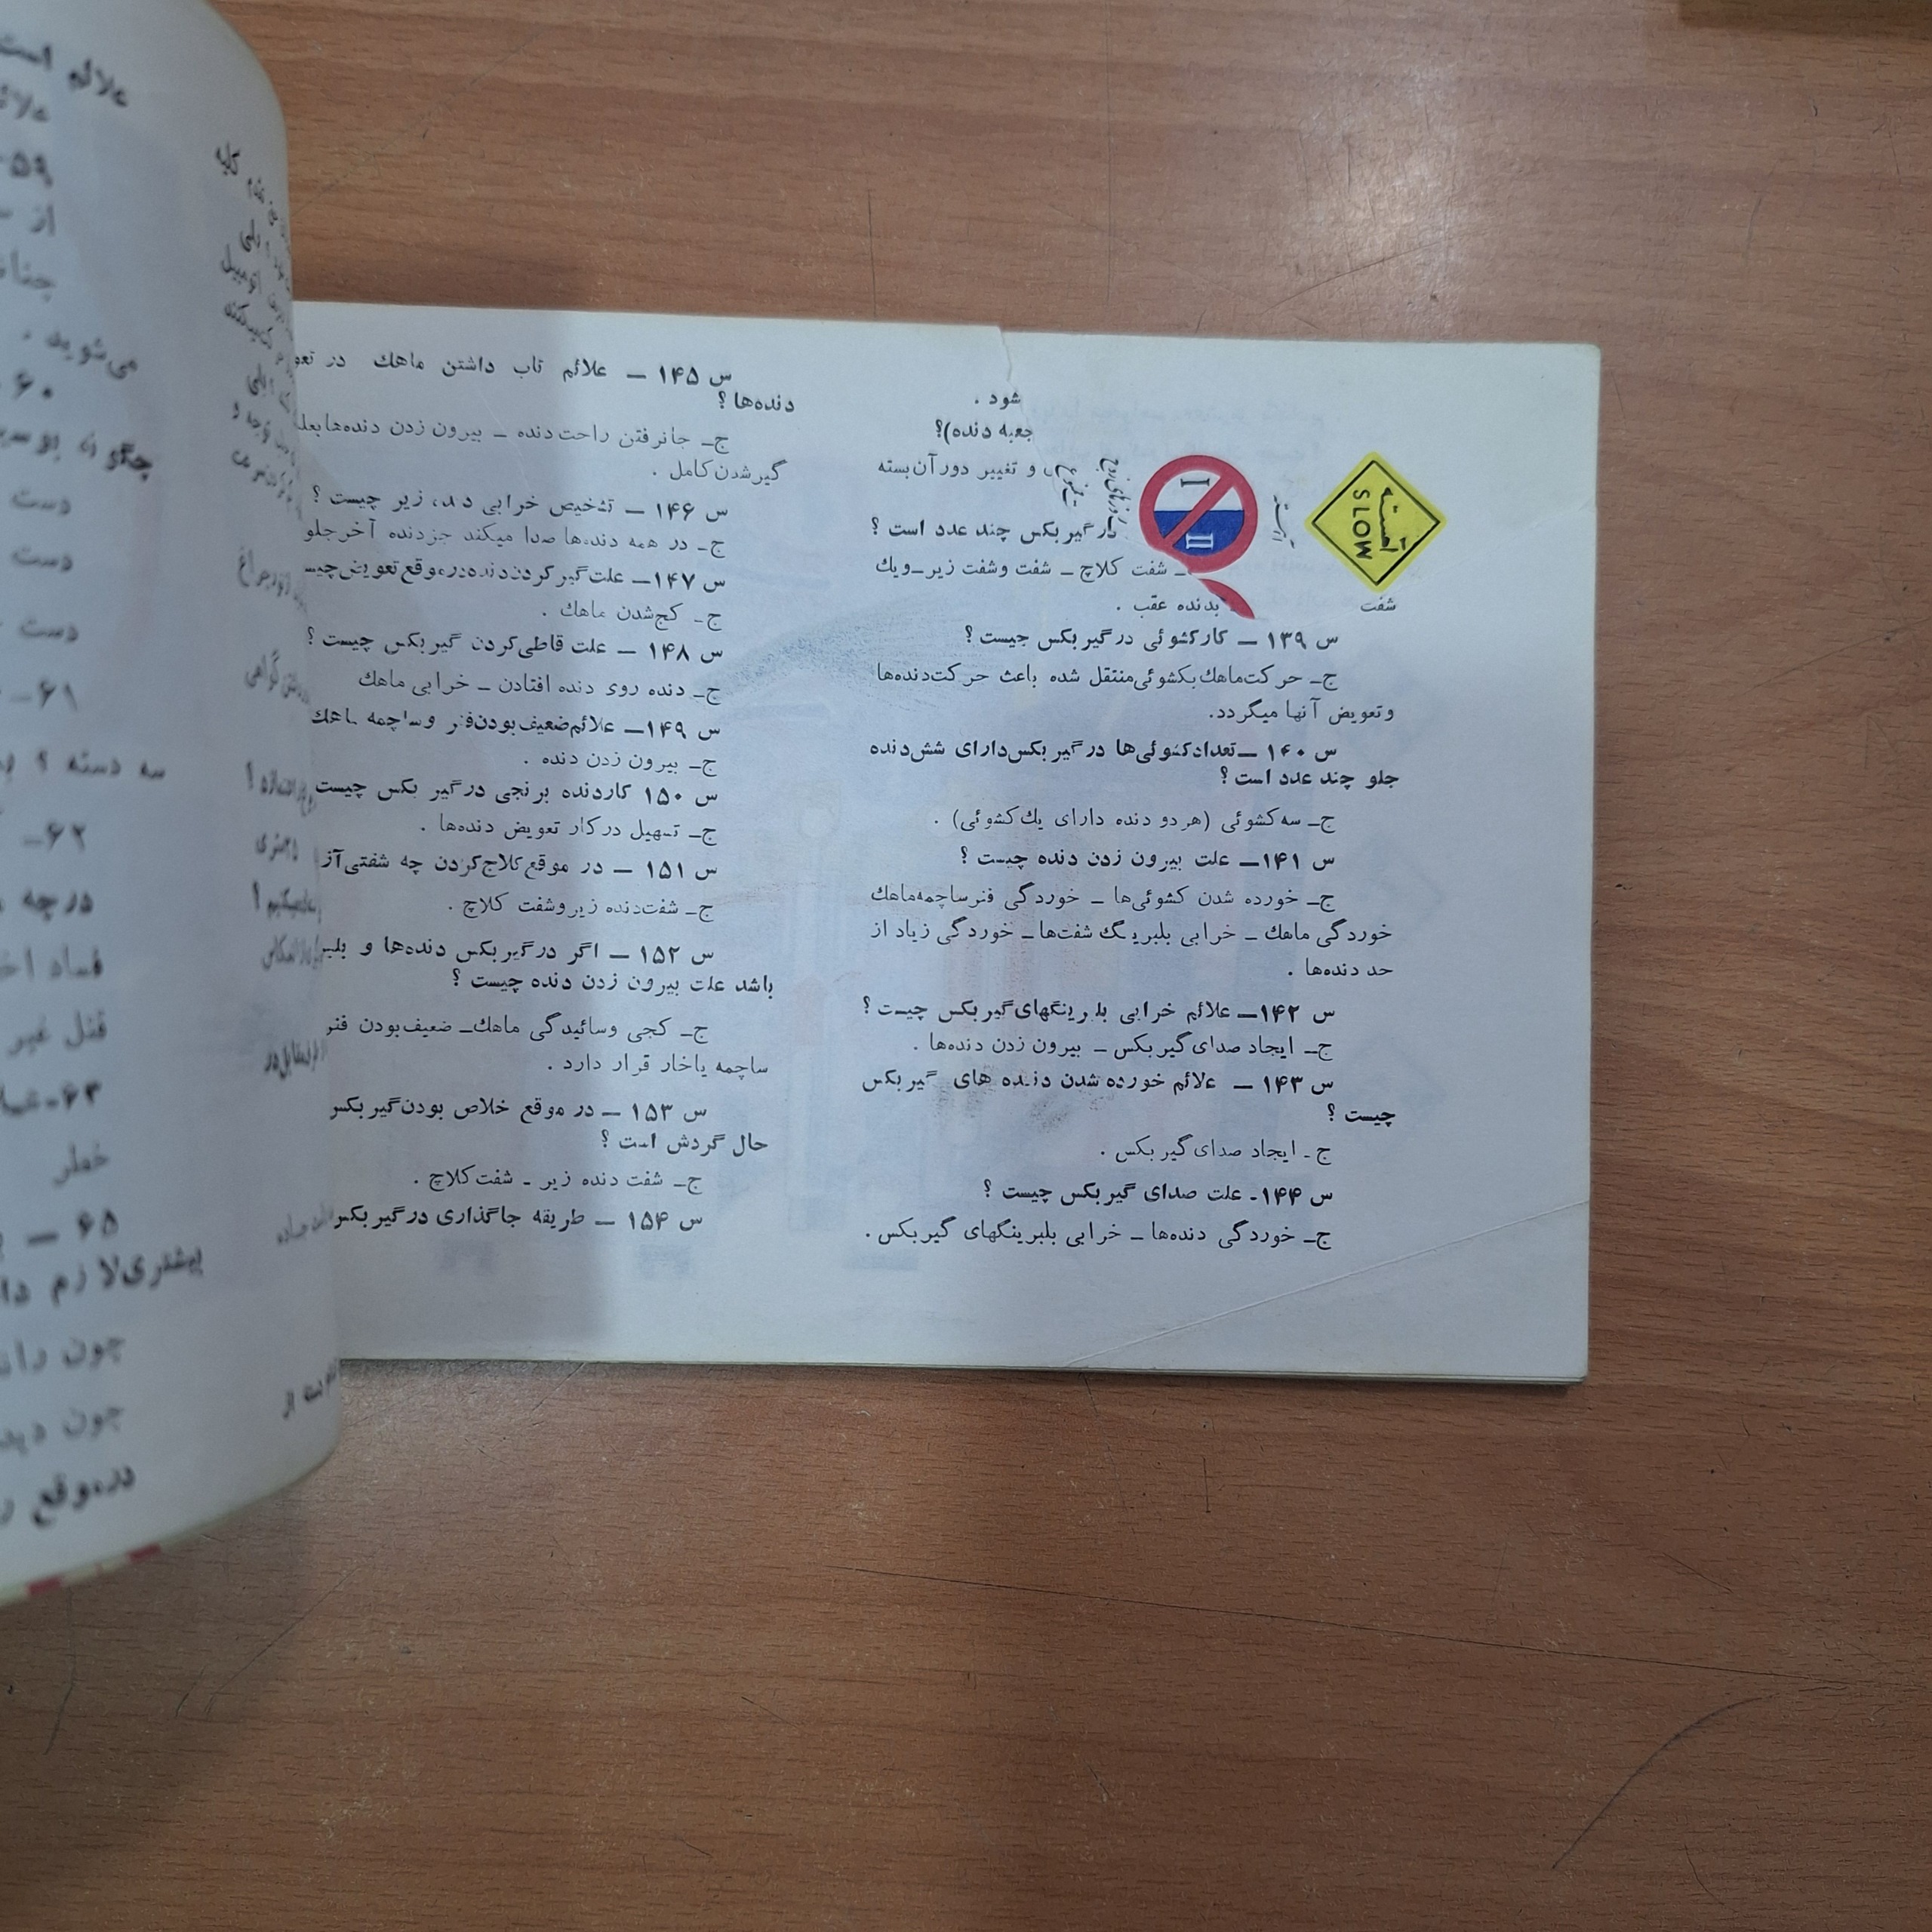 شود .
جعبه دنده)؟
و تغییر دور آن بسته
در گیر بکس چند عدد است ؟
شفت کلاچ ــ شفت وشفت زیر ــ ویك
بدنده عقب .
آهسته
SLOW
I
II
شفت
س ۱۳۹ ــ کار کشوئی در گیر بکس چیست ؟
ج ــ حرکت ماهك بکشوئی منتقل شده باعث حرکت دنده‌ها
و تعویض آنها میگردد.
س ۱۴۰ ــ تعداد کشوئی‌ها در گیر بکس دارای شش دنده
جلو چند عدد است ؟
ج ــ سه کشوئی (هر دو دنده دارای یك کشوئی) .
س ۱۴۱ ــ علت بیرون زدن دنده چیست ؟
ج ــ خورده شدن کشوئی‌ها ــ خوردگی فنر ساچمه ماهك
خوردگی ماهك ــ خرابی بلبرینگ شفت‌ها ــ خوردگی زیاد از
حد دنده‌ها .
س ۱۴۲ ــ علائم خرابی بلبرینگهای گیر بکس چیست ؟
ج ــ ایجاد صدای گیر بکس ــ بیرون زدن دنده‌ها .
س ۱۴۳ ــ علائم خورده شدن دنده های گیر بکس
چیست ؟
ج ـ ایجاد صدای گیر بکس .
س ۱۴۴ ـ علت صدای گیر بکس چیست ؟
ج ــ خوردگی دنده‌ها ــ خرابی بلبرینگهای گیر بکس .
س ۱۴۵ ــ علائم تاب داشتن ماهك در
دنده‌ها ؟
ج ــ جا نرفتن راحت دنده ــ بیرون زدن دنده‌ها
گیر شدن کامل .
س ۱۴۶ ــ تشخیص خرابی دنده زیر چیست ؟
ج ــ در همه دنده‌ها صدا میکند جز دنده آخر جلو
س ۱۴۷ ــ علت گیر کردن دنده در موقع تعویض
ج ــ کج شدن ماهك .
س ۱۴۸ ــ علت قاطی کردن گیر بکس چیست ؟
ج ــ دنده روی دنده افتادن ــ خرابی ماهك
س ۱۴۹ ــ علائم ضعیف بودن فنر و ساچمه ماهك
ج ــ بیرون زدن دنده .
س ۱۵۰ کار دنده برنجی در گیر بکس چیست
ج ــ تسهیل در کار تعویض دنده‌ها .
س ۱۵۱ ــ در موقع کلاج کردن چه شفتی
ج ــ شفت دنده زیر و شفت کلاچ .
س ۱۵۲ ــ اگر در گیر بکس دنده‌ها و
باشد علت بیرون زدن دنده چیست ؟
ج ــ کجی و سائیدگی ماهك ــ ضعیف بودن فنر
ساچمه یا خار قرار دارد .
س ۱۵۳ ــ در موقع خلاص بودن گیر بکس
حال گردش است ؟
ج ــ شفت دنده زیر ـ شفت کلاچ .
س ۱۵۴ ــ طریقه جاگذاری در گیر بکس
علائم است
۵۹
از
می‌شوید .
۶۰
چگونه
دست
دست
دست
۶۱ ـ
سه دسته ؟
۶۲ ـ
درچه
فساد
قتل غیر
۶۳ ـ
خطر
۶۵ ــ
بیشتری لازم
چون
چون
درموقع